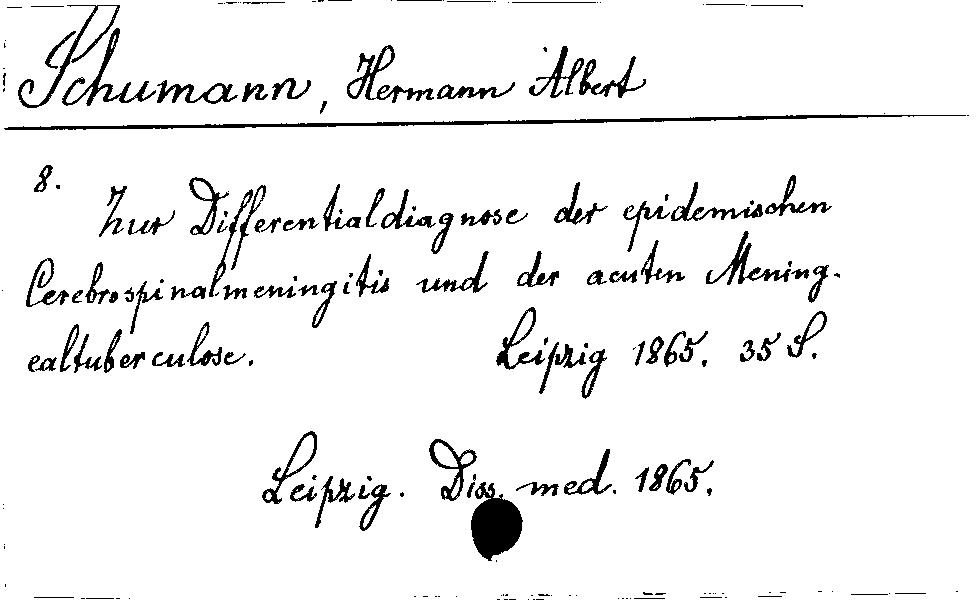 Schumann, Hermann Albert
8.
Zur Differentialdiagnose der epidemischen
Cerebrospinalmeningitis und der acuten Mening-
ealtuberculose. Leipzig 1865. 35 S.
Leipzig. Diss. med. 1865.